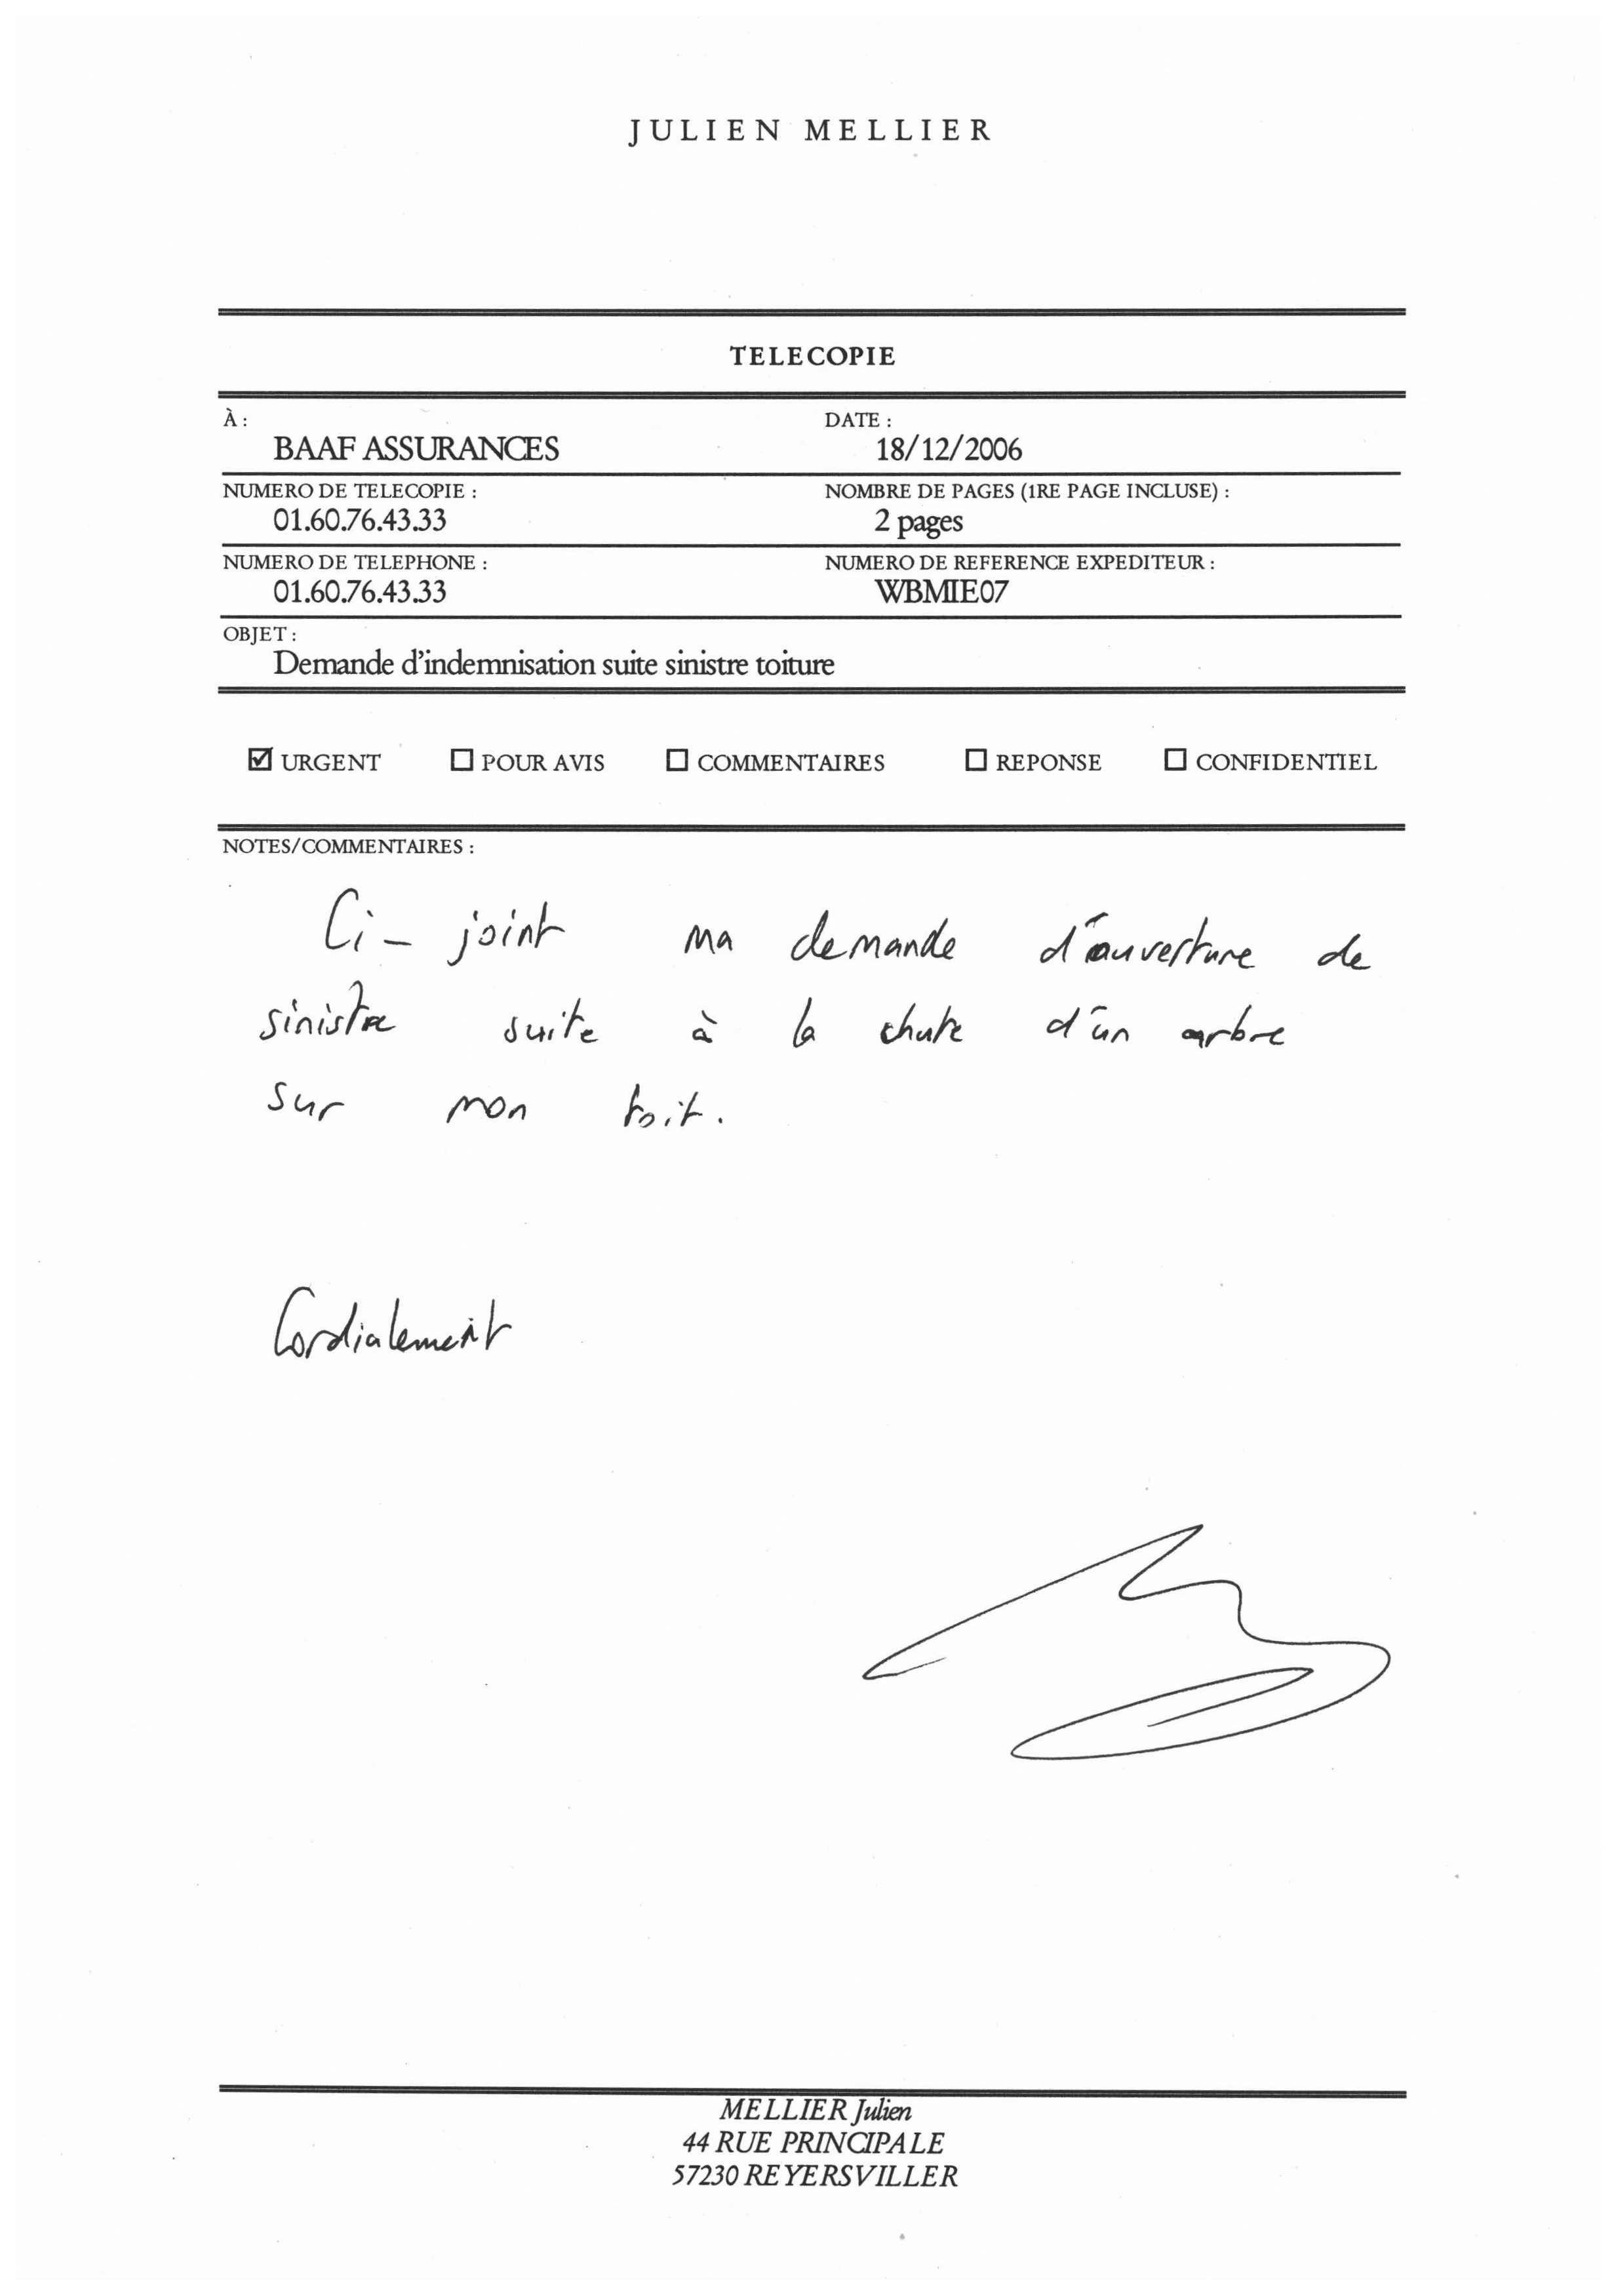 JULIEN MELLIER
TELECOPIE
À :
DATE :
BAAF ASSURANCES
18/12/2006
NUMERO DE TELECOPIE :
NOMBRE DE PAGES (1RE PAGE INCLUSE) :
01.60.76.43.33
2 pages
NUMERO DE TELEPHONE :
NUMERO DE REFERENCE EXPEDITEUR :
01.60.76.43.33
WBMIE07
OBJET :
Demande d'indemnisation suite sinistre toiture
☑ URGENT ☐ POUR AVIS ☐ COMMENTAIRES ☐ REPONSE ☐ CONFIDENTIEL
NOTES/COMMENTAIRES :
Ci-joint ma demande d'ouverture de
sinistre suite à la chute d'un arbre
sur mon toit.
Cordialement
MELLIER Julien
44 RUE PRINCIPALE
57230 REYERSVILLER